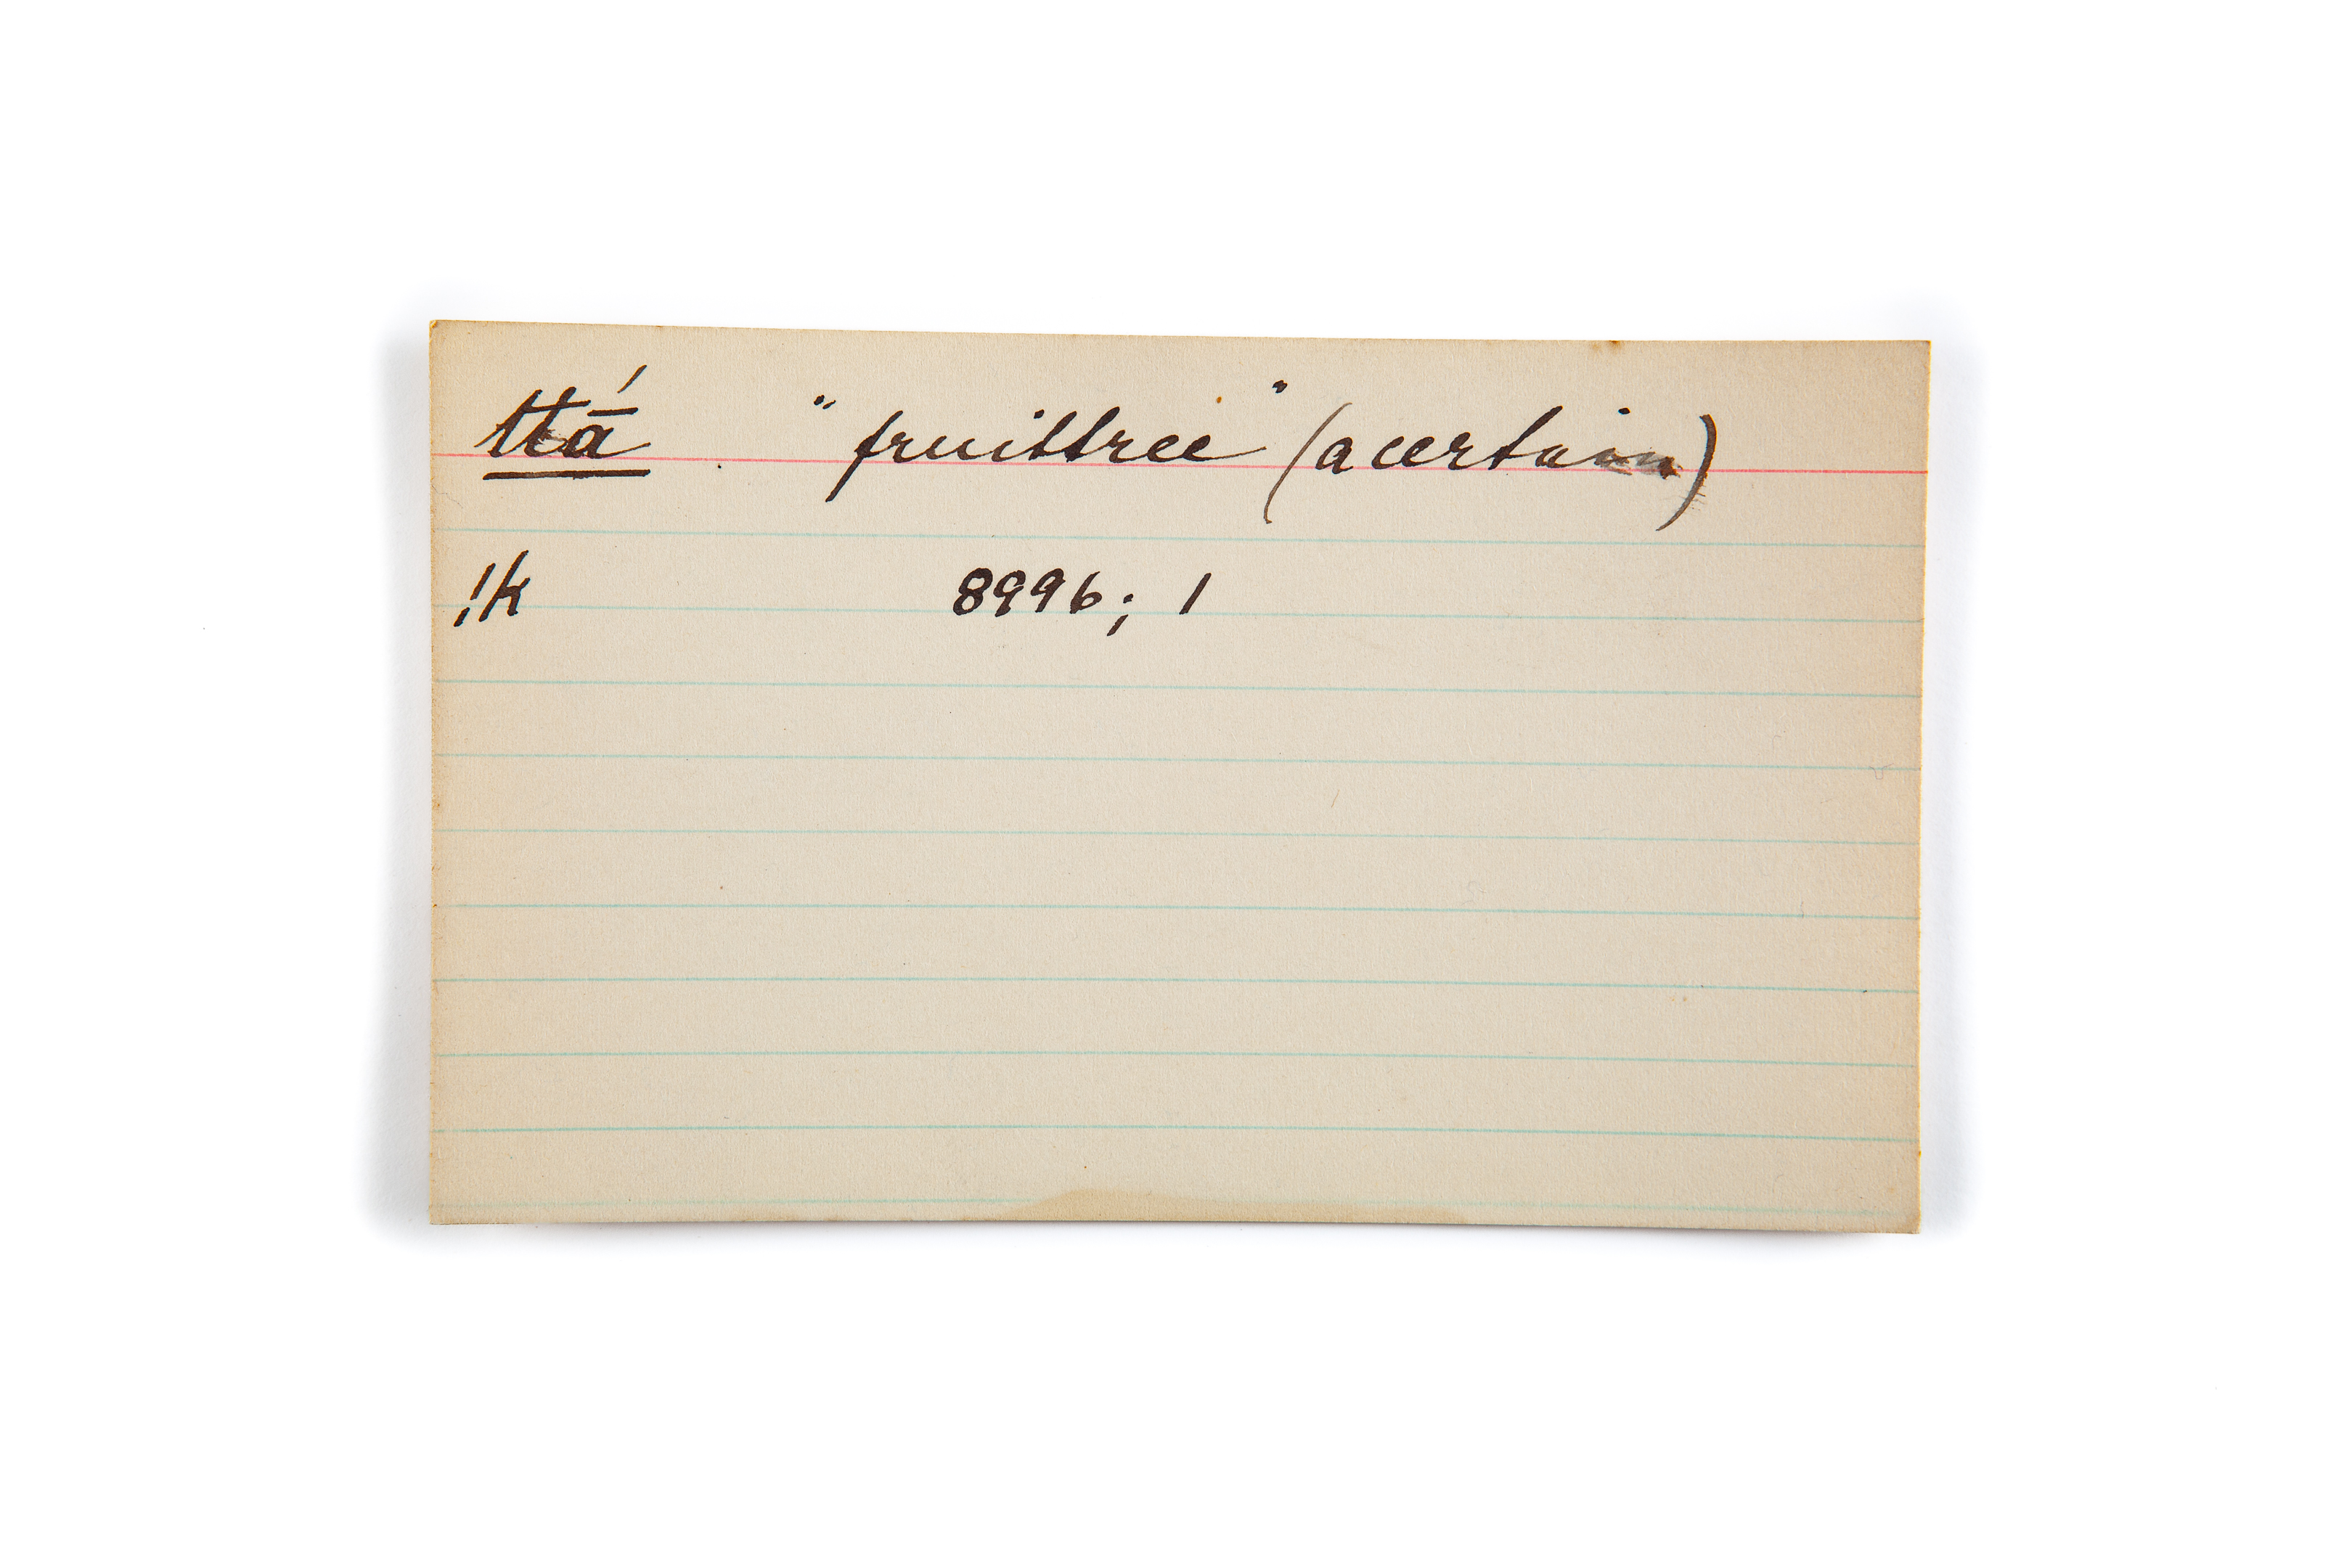 ttā́ . "fruittree" (a certain)
!k 8996; 1